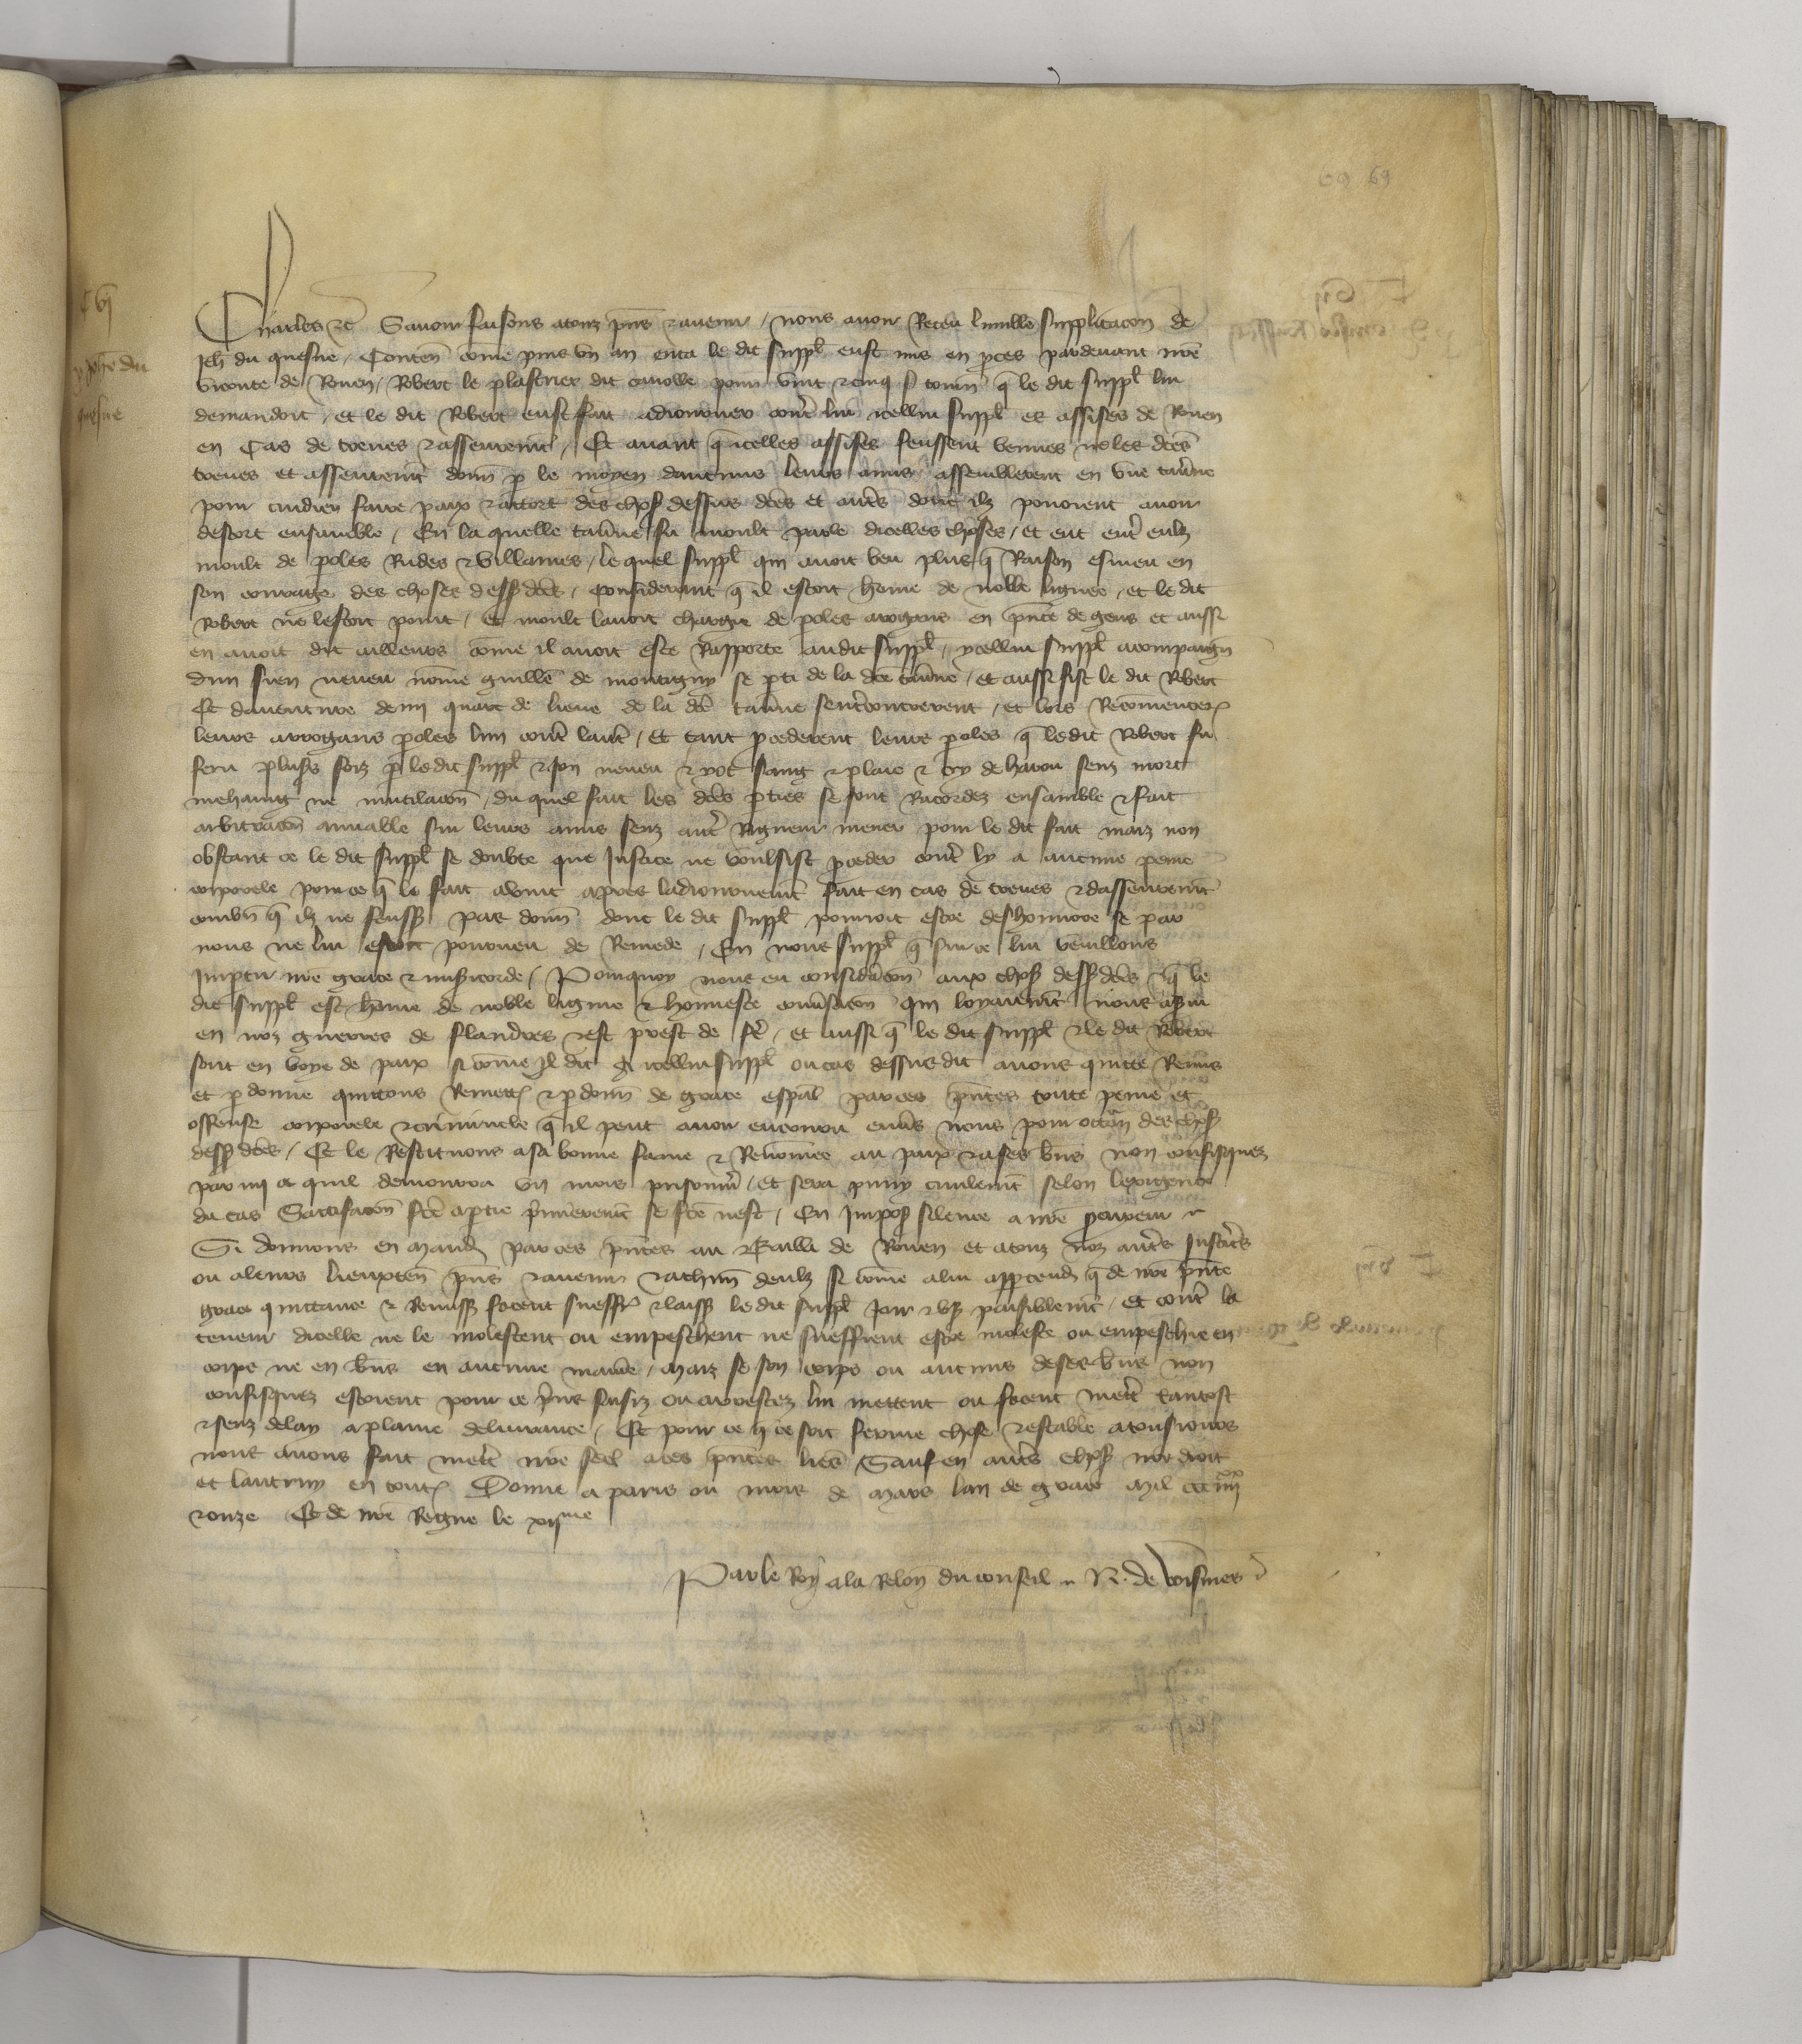 69
Cvj
p Jehan du
quesne
Charles etc̃ Savoir faisons a touz pñs et avenir / nous avoir Receu lumble supplicacõn de
Jeh̃ du quesne / Conten̄ cõme puis vn an enca le dit suppl̃ eust mis en pces pardevant nr̃e
viconte de Rouen / Robert le plastrier dit pour vint et cinq s̃ tourn̄ q̃ le dit suppl̃ lui
demandoit / et le dit Robert eust fait adiourner contr̃ lui icellui suppl̃ es assises de Rouen
en Cas de treues et asseurem̃t / Et avant q̃ icelles assises feussent venues ne les dc̃es
treues et asseurem̃t donn̄ p le moyen daucuns leurs amis assemblerent en vne tav̄ne
pour cuidier faire paix et accort des chos̃ dessus dc̃es et autr̃s dont ilz pouoient avoir
descort ensamble / En la quelle tav̄ne fu moult parle dicelles choses / et eut entr̃ eulx
moult de poles Rudes et villaines / le quel suppl̃ qui avoit beu plus q̃ Raison esmeu en
son courage des choses dess̃ dc̃es / considerant q̃ il estoit hõme de noble lignee / et le dit
Robert ne lestoit point / et moult lavoit chargie de poles arogans en pñce de gens et aussi
en avoit dit ailleurs cõme il avoit este Rapporte audit suppl̃ / ycellui suppl̃ acompaign̄
dun sien neveu nõme guillē de montigny se pti de la dc̃e tav̄ne / et aussi fist le dit Robert
Et daventure demi quart de lieue de la dc̃e tav̄ne sentrecontrerent / et lors Recõmencer̃
leurs arrogans poles lun contr̃ lautr̃ / et tant pcederent leurs poles q̃ ledit Robert fu
feru plus̃s foiz p ledit suppl̃ et son neveu et y ot sang et plaie et cry de harou senz mort
mehaing ne mutilacõn / du quel fait les dc̃es pties se sont Racordez ensamble et fait
arbitracõn amiable sur leurs amis senz autr̃ Rigueur mener pour le dit fait maiz non
obstant ce le dit suppl̃ se doubte que Justice ne voulsist pceder contr̃ ly a aucune peine
corporele pour ce q̃ le fait avint apres ladiournem̃t fait en cas de treues et dasseurem̃t
combn̄ q̃ ilz ne feuss̃ pas donn̄ dont le dit suppl̃ pourroit estre deshonnore se par
nous ne lui estoit pourveu de Remede / En nous suppl̃ q̃ sur ce lui veuillons
Imptir nr̃e grace et mis̃icorde / Pourquoy nous eu consid̃acõn aux chos̃ dess̃ dc̃es et q̃ le
dit suppl̃ est hõme de noble lignie et honneste conv̄sacõn qui loyaum̃t nous a s̃vi
en noz guerres de flandres et est prest de fẽ / et aussi q̃ le dit suppl̃ et le dit Robert
sont en voye de paix si cõme Il dit A icellui suppl̃ ou cas dessusdit avons quitte Remis
et pdonne quittons Remett̃ et pdonn̄ de grace esp̃al par ces pñtes toute peine et
offense corporele et criminele q̃ il peut avoir encouru env̄s nous pour occ̃on des chos̃
dess̃ dc̃es / Et le Restituons a sa bonne fame et Renõmee au paix et a ses bñs non confisquez
par mi ce quil demourra vn mois prisonn̄ / et sera puny civilem̃t selon lexigence
du cas Sattisfacõn fc̃e a ptie p̃mierem̃t se fc̃e nest / En Impos̃ silence a nr̃e pcureur etc̃
Si donnons en mand̃ par ces pñtes au Bailli de Rouen et a touz noz autr̃s Justic̃s
ou a leurs lieuxten̄ pñs et avenir et a chun̄ deulx si cõme a lui apptend̃ q̃ de nr̃e pñte
grace quittance et Remiss̃ facent sueffr̃ et laiss̃ le dit suppl̃ Joir et vs̃ paisiblem̃t / et contr̃ la
teneur dicelle ne le molestent ou empeschent ne sueffrent estre moleste ou empeschie en
corps ne en bñs en aucune man̄e / maiz se son corps ou aucuns de ses bñs non
confisquez estoient pour ce pris saisiz ou arrestez lui mettent ou facent mettr̃ tantost
et senz delay a plaine delivrance / Et pour ce q̃ ce soit ferme chose et estable a tousiours
nous avons fait mettr̃ nr̃e seel a ces pñtes lr̃es Sauf en autr̃s chos̃ nr̃e droit
et lautruy en tout̃ Donne a paris ou mois de mars lan de grace mil ccc iiij xx
et onze Et de nr̃e Regne le xij me
Par le Roy a la Relon̄ du conseil .. N. de voisines